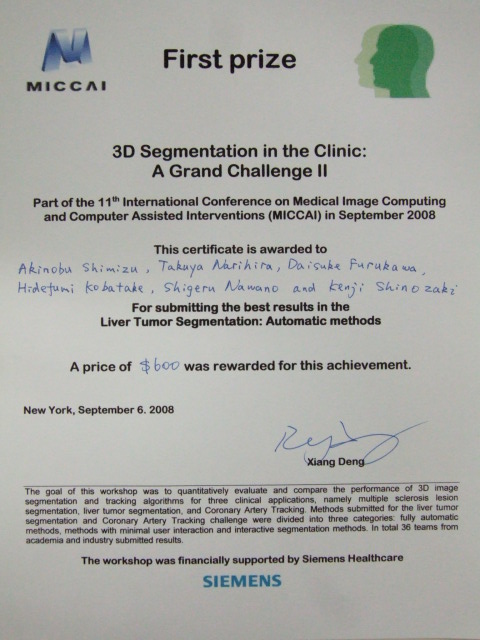 MICCAI
First prize
3D Segmentation in the Clinic:
A Grand Challenge II
Part of the 11th International Conference on Medical Image Computing
and Computer Assisted Interventions (MICCAI) in September 2008
This certificate is awarded to
Akinobu Shimizu, Takuya Narihira, Daisuke Furukawa,
Hidefumi Kobatake, Shigeru Nawano and Kenji Shinozaki
For submitting the best results in the
Liver Tumor Segmentation: Automatic methods
A price of $600 was rewarded for this achievement.
New York, September 6. 2008
Xiang Deng
The goal of this workshop was to quantitatively evaluate and compare the performance of 3D image
segmentation and tracking algorithms for three clinical applications, namely multiple sclerosis lesion
segmentation, liver tumor segmentation, and Coronary Artery Tracking. Methods submitted for the liver tumor
segmentation and Coronary Artery Tracking challenge were divided into three categories: fully automatic
methods, methods with minimal user interaction and interactive segmentation methods. In total 36 teams from
academia and industry submitted results.
The workshop was financially supported by Siemens Healthcare
SIEMENS